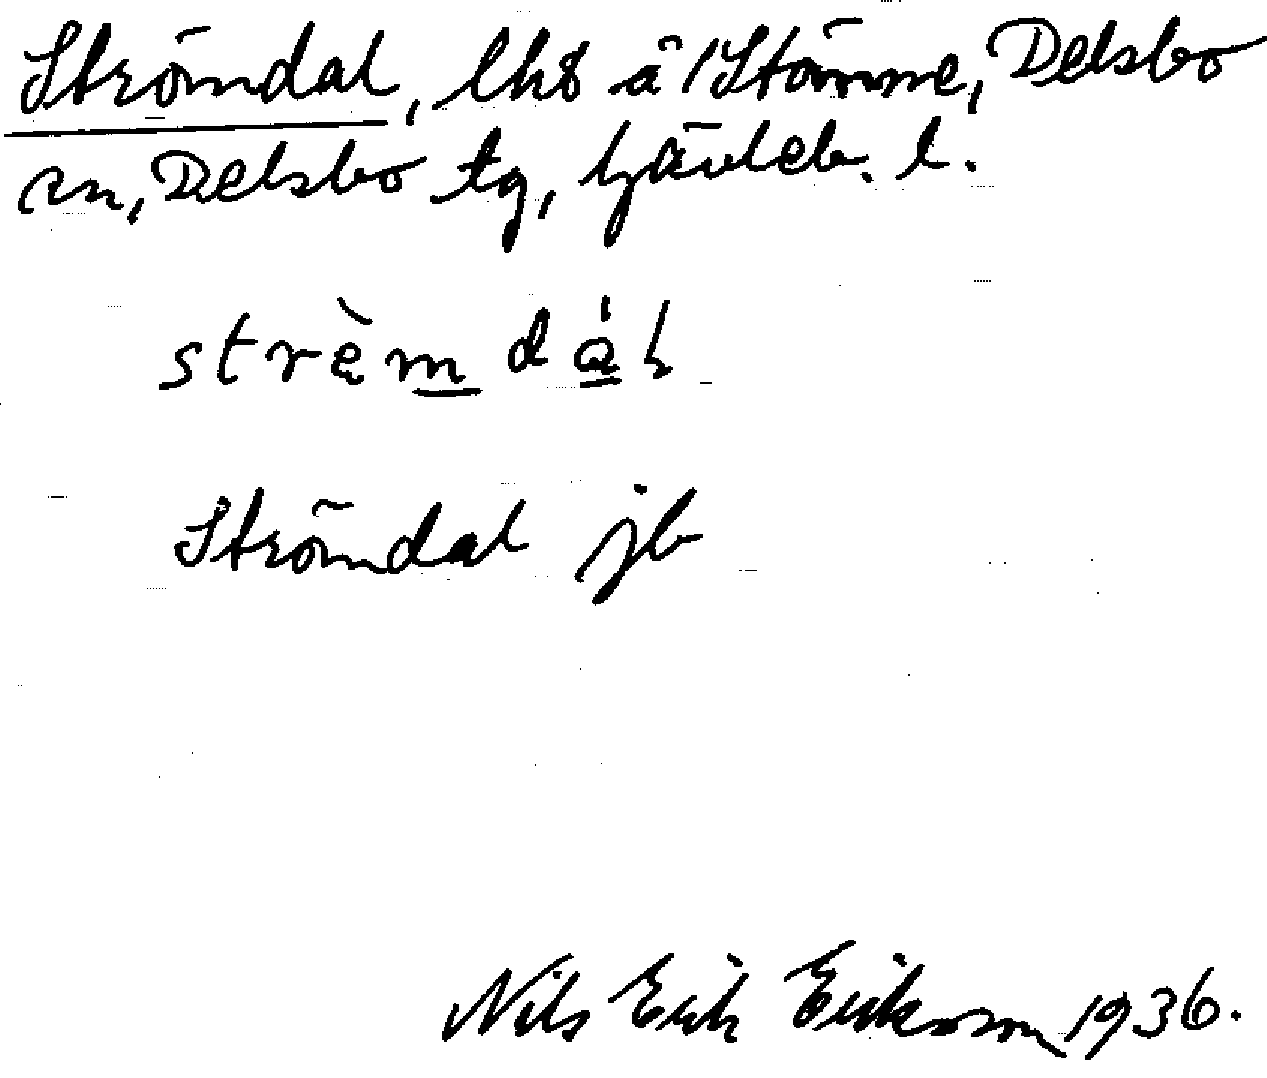 Strömdal, lhs å /Stömne, Delsbo
sn, Delsbo tg, Gävleb. l.
strèm dáL
Strömdal jb
Nils Erik Eriksson 1936.